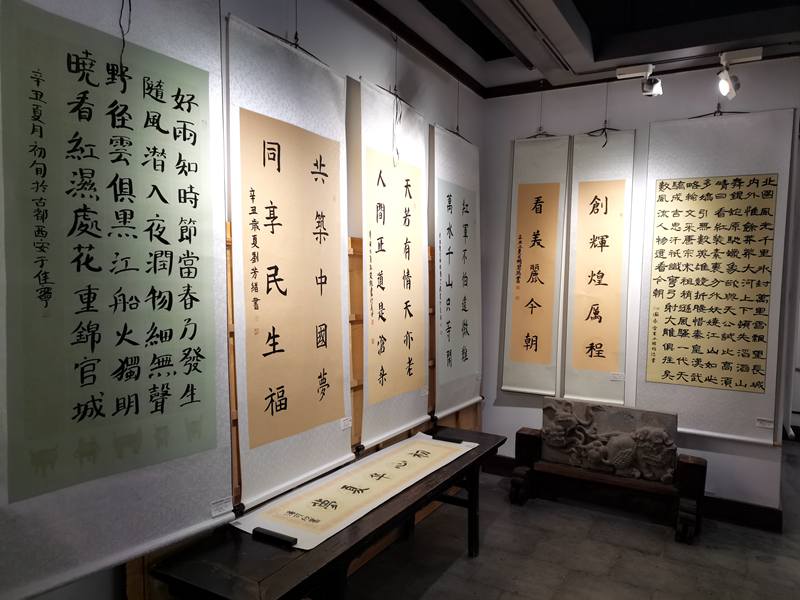 好雨知時節當春乃發生
隨風潛入夜潤物細無聲
野径雲俱黑江船火獨明
曉看紅濕處花重錦官城
辛丑夏月初旬於古都西安
共築中國夢
同享民生福
辛丑歲夏劉芳緒書
天若有情天亦老
人間正道是滄桑
紅軍不怕遠征難
萬水千山只等閒
創輝煌厲程
看美麗今朝
北國風光千里冰封萬里雪飄望長城
內外惟餘莽莽大河上下頓失滔滔山
舞銀蛇原馳蠟象欲與天公試比高須
晴日看紅裝素裹分外妖嬈江山如此
多嬌引無數英雄競折腰惜秦皇漢武
略輸文采唐宗宋祖稍遜風騷一代天
驕成吉思汗祇識彎弓射大雕俱往矣
數風流人物還看今朝